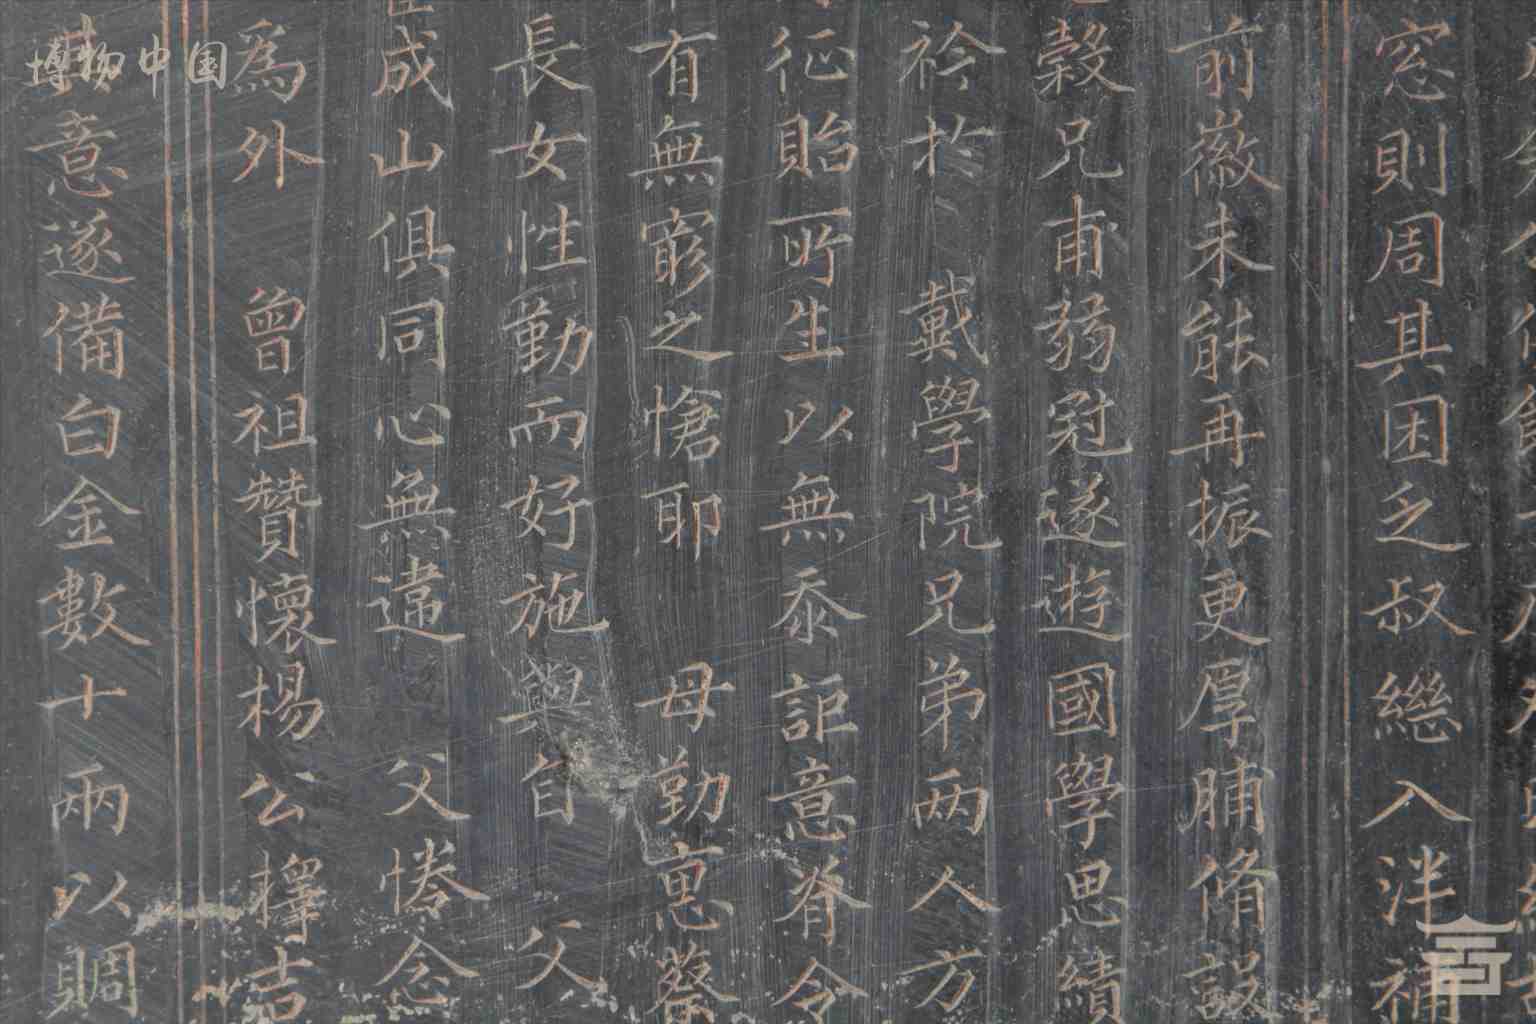 窓則周其困乏叔繼入泮補
前徽未能再振更厚脯脩設
穀兄甫弱冠遂遊國學思績
衿於 戴學院兄弟兩人方
征貽所生以無忝詎意脊令
有無窮之愴耶 母勤恵蔡
長女性勤而好施與自 父
成山俱同心無違 父惓念
為外 曾祖贊懷楊公擇吉
意遂備白金數十兩以賙
博物中国